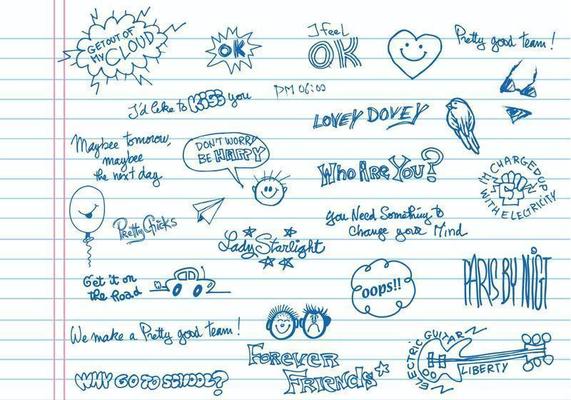 GET OUT OF
MY CLOUD
OK
I feel
OK
Pretty good team!
I'd like to KISS you
PM 06:00
LOVEY DOVEY
Maybee tomorow,
maybee
the next day
DON'T WORRY
BE HAPPY
WHO ARE YOU?
I'M CHARGED UP
WITH ELECTRICITY
Pretty Chicks
Lady Starlight
You Need Something to
Change your Mind
Get it on
the Road
OOPS!!
PARIS BY NIGT
We make a Pretty good team!
FOREVER
FRIENDS
ELECTRIC GUITAR
LIBERTY
WHY GO TO SCHOOL?